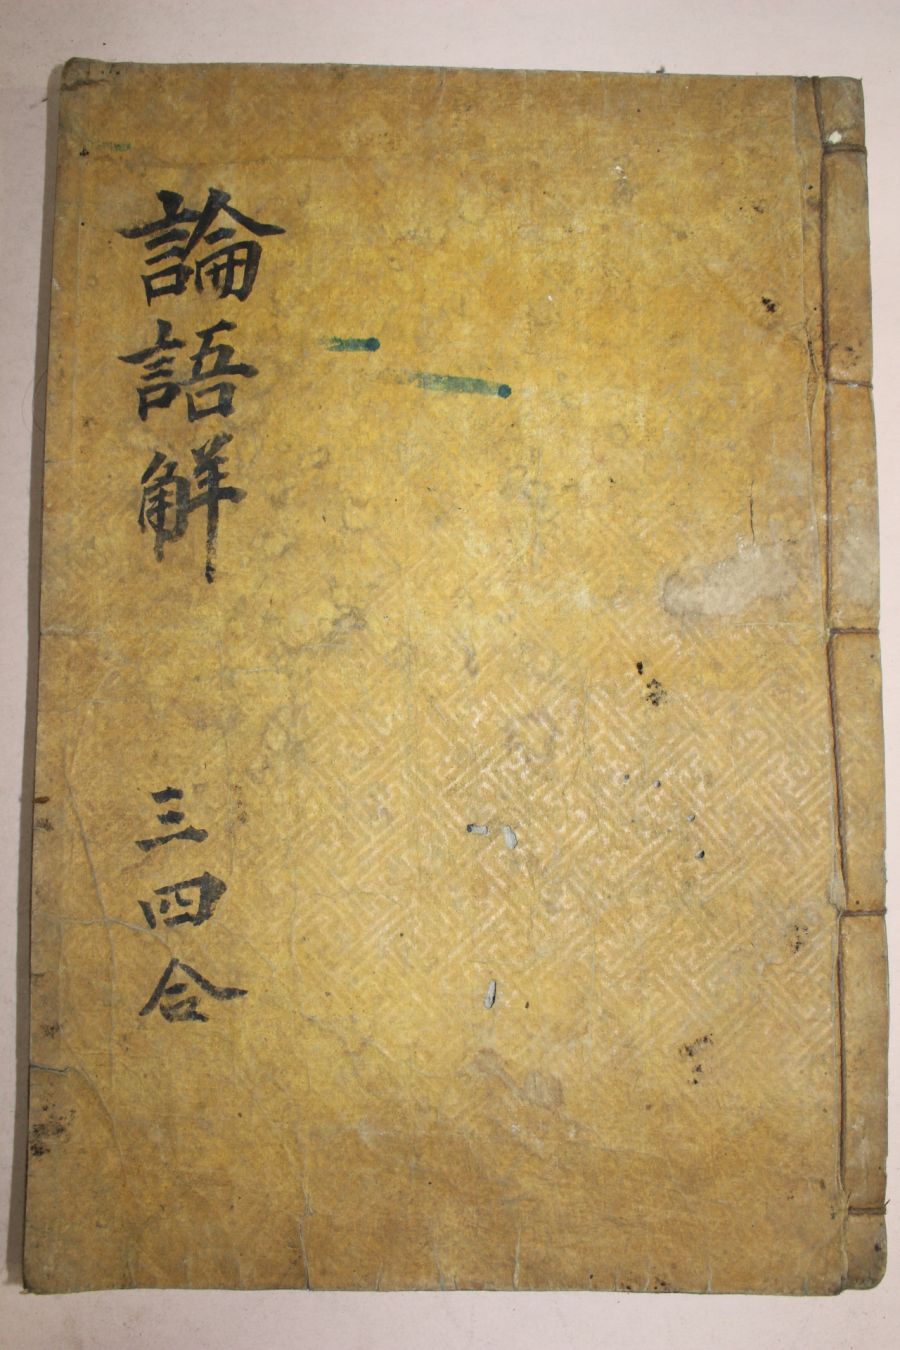 論語解
三四合